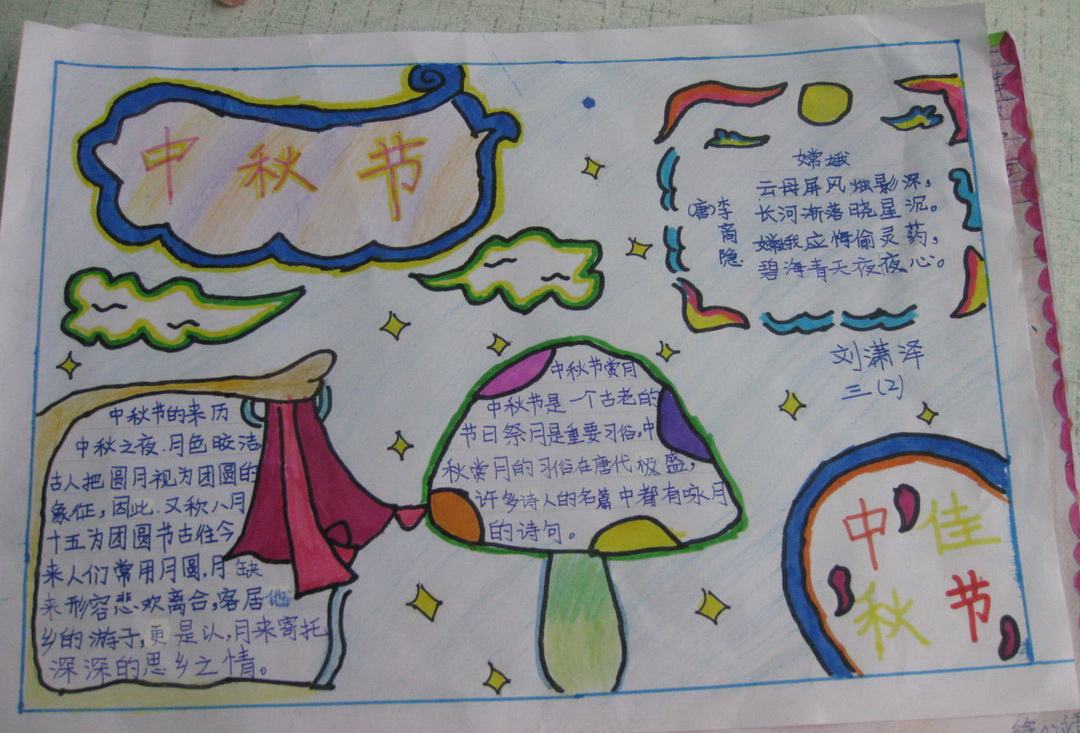 中秋节
嫦娥
(唐)李商隐
云母屏风烛影深，
长河渐落晓星沉。
嫦娥应悔偷灵药，
碧海青天夜夜心。
刘潇泽
三(2)
中秋节的来历
中秋之夜.月色皎洁
古人把圆月视为团圆的
象征，因此.又称八月
十五为团圆节古往今
来人们常用月圆.月缺
来形容悲欢离合，客居他
乡的游子，更是认，月来寄托
深深的思乡之情。
中秋节赏月
中秋节是一个古老的
节日祭月是重要习俗。中
秋赏月的习俗在唐代极盛，
许多诗人的名篇中都有咏月
的诗句。
中秋
佳节